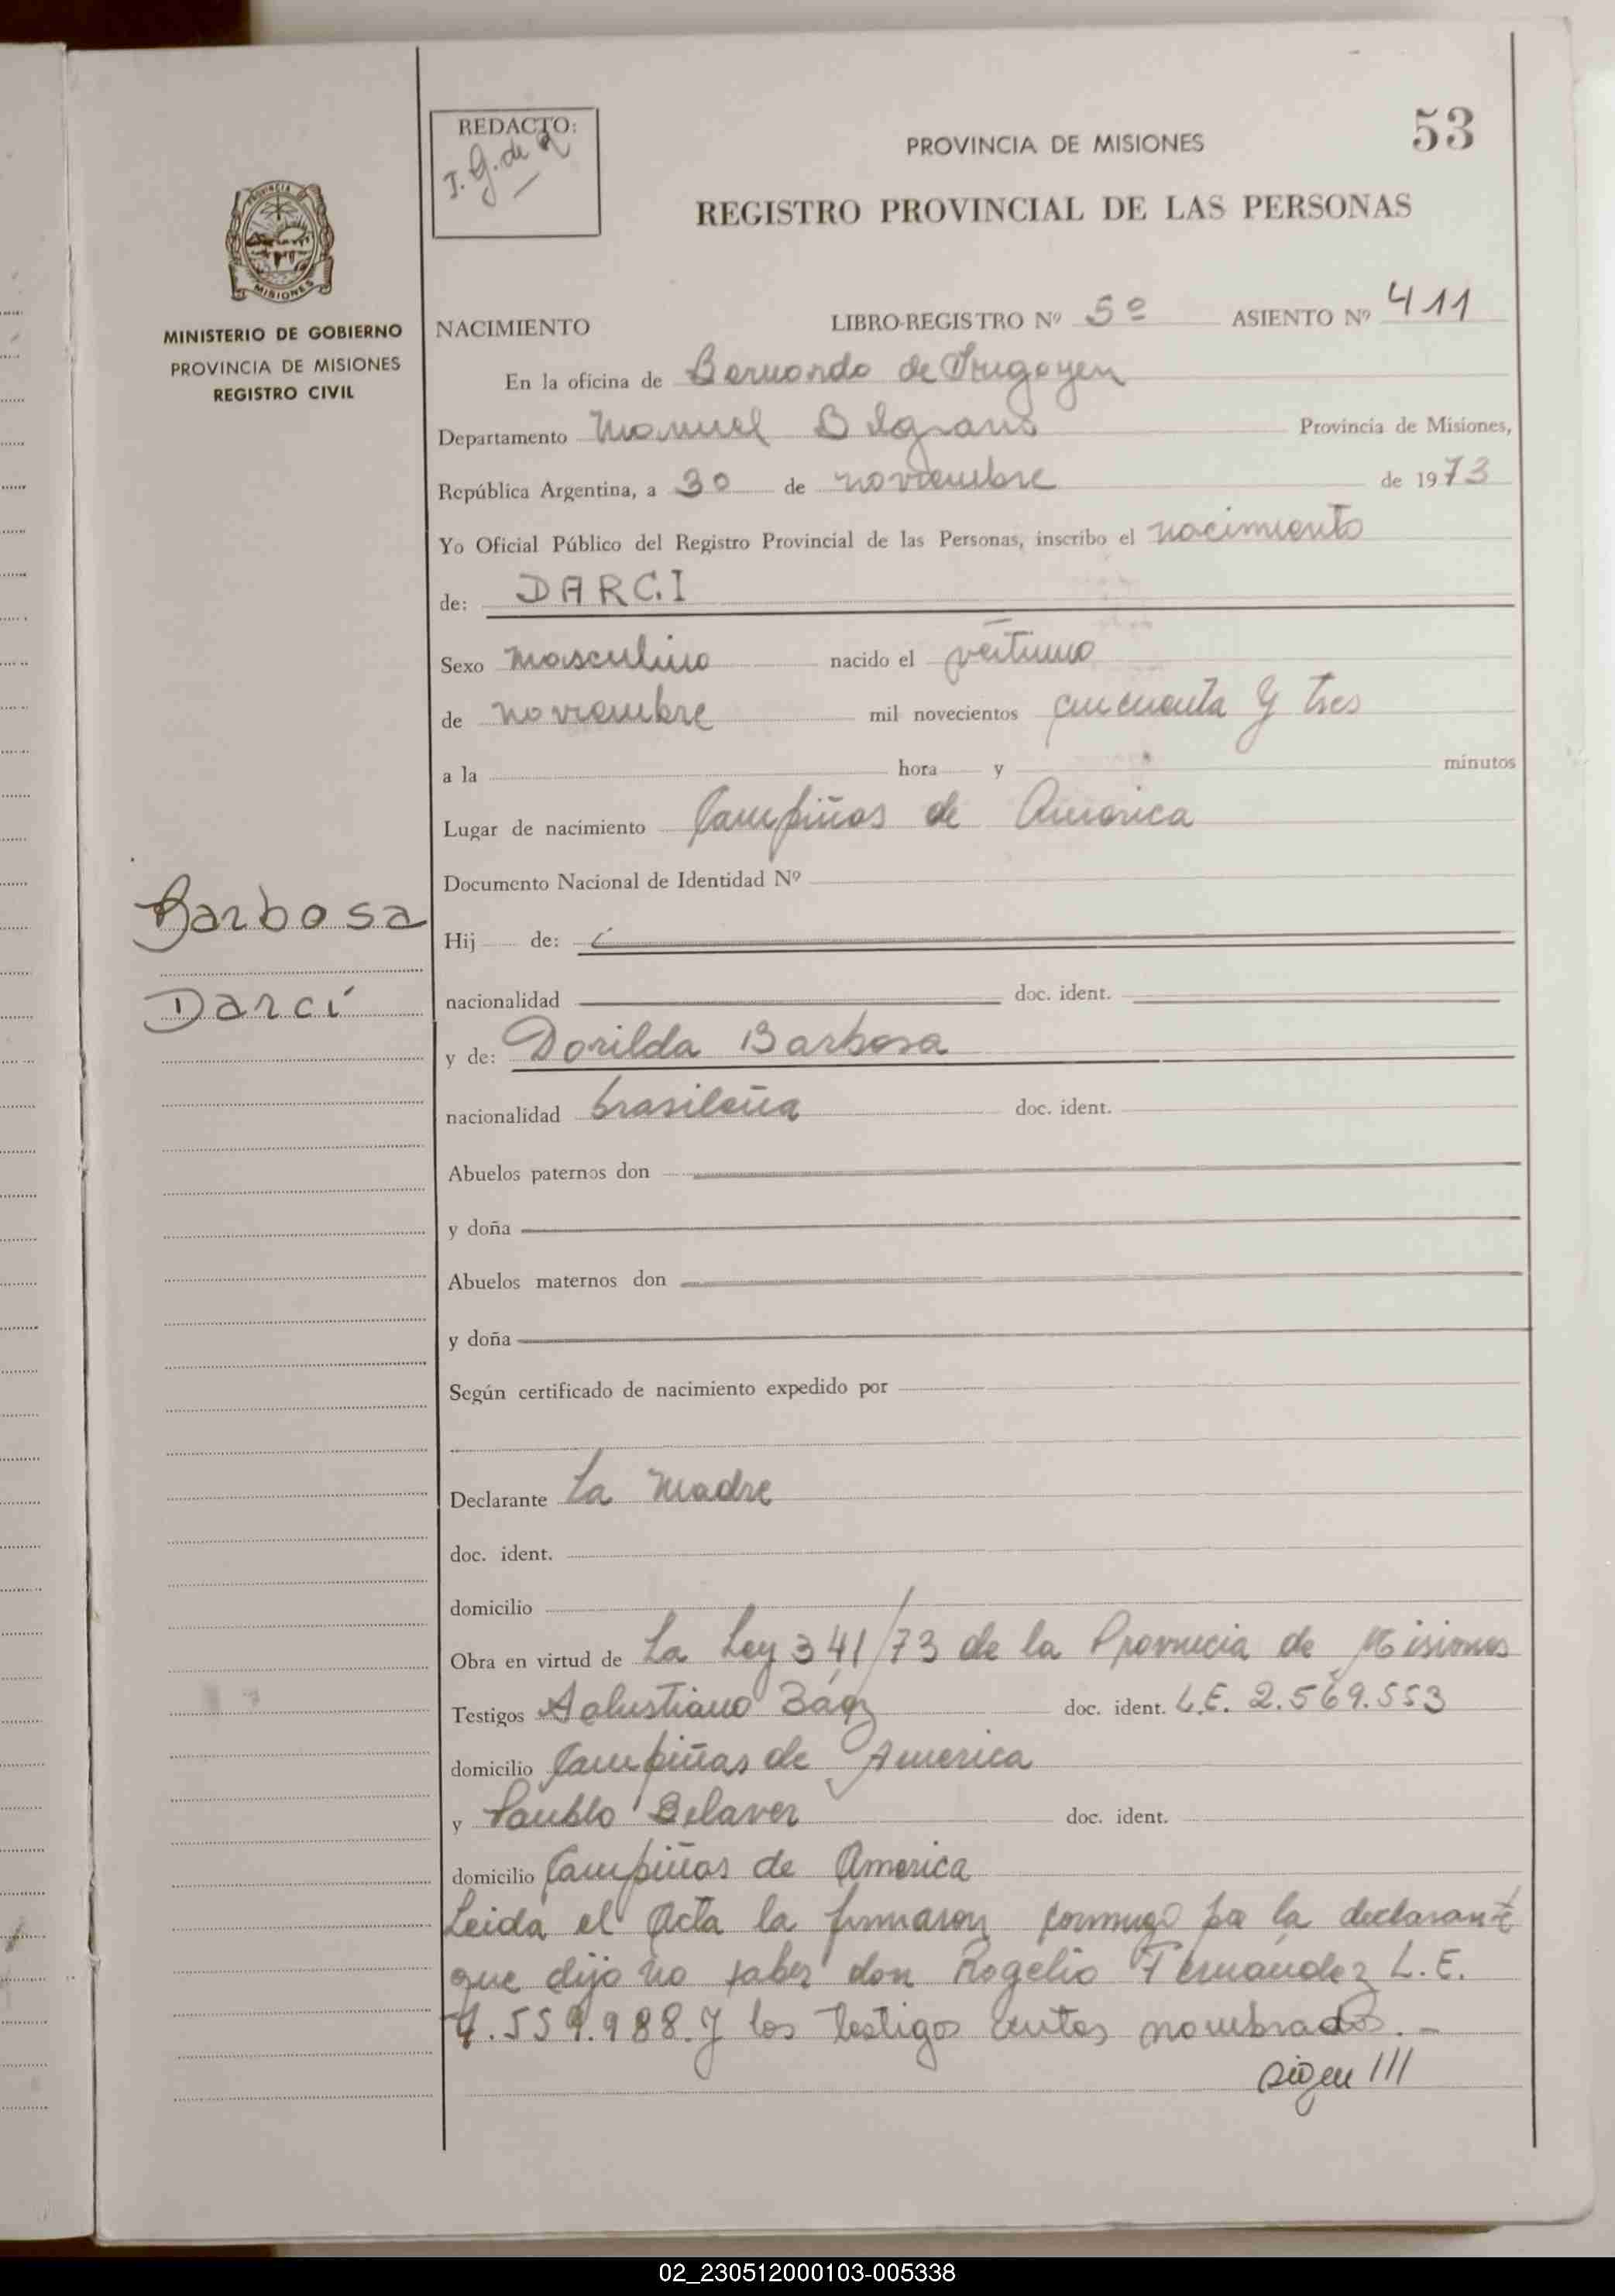 REDACTO:
J. G. de R
53
PROVINCIA DE MISIONES
REGISTRO PROVINCIAL DE LAS PERSONAS
PROVINCIA DE
MISIONES
MINISTERIO DE GOBIERNO
PROVINCIA DE MISIONES
REGISTRO CIVIL
NACIMIENTO LIBRO-REGISTRO Nº 5º ASIENTO Nº 411
En la oficina de Bernardo de Irugoyen
Departamento Manuel Belgrano Provincia de Misiones,
República Argentina, a 30 de noviembre de 1973
Yo Oficial Público del Registro Provincial de las Personas, inscribo el nacimiento
de: DARCI
Sexo masculino nacido el
de noviembre mil novecientos cincuenta y tres
a la hora y minutos
Lugar de nacimiento Campiñas de America
Documento Nacional de Identidad Nº
Barbosa
Hij de:
Darcí
nacionalidad doc. ident.
y de: Dorilda Barbosa
nacionalidad brasileña doc. ident.
Abuelos paternos don
y doña
Abuelos maternos don
y doña
Según certificado de nacimiento expedido por
Declarante La Madre
doc. ident.
domicilio
Obra en virtud de La Ley 341/73 de la Provincia de Misiones
Testigos Salustiano Báez doc. ident. L.E. 2.569.553
domicilio Campiñas de America
y Paublo Belaver doc. ident.
domicilio Campiñas de America
Leida el Acta la firmaron conmigo por la declarante
que dijo no saber don Rogelio Fernández L.E.
4.559.988. y los testigos antes nombrados.-
siguen ///
02_230512000103-005338